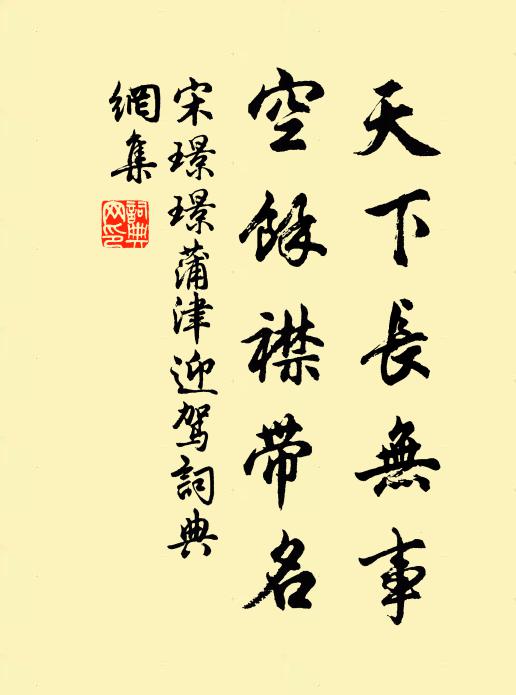 天下長無事
空餘襟帶名
宋璟璟蒲津迎駕詞典
網集
詞典網印